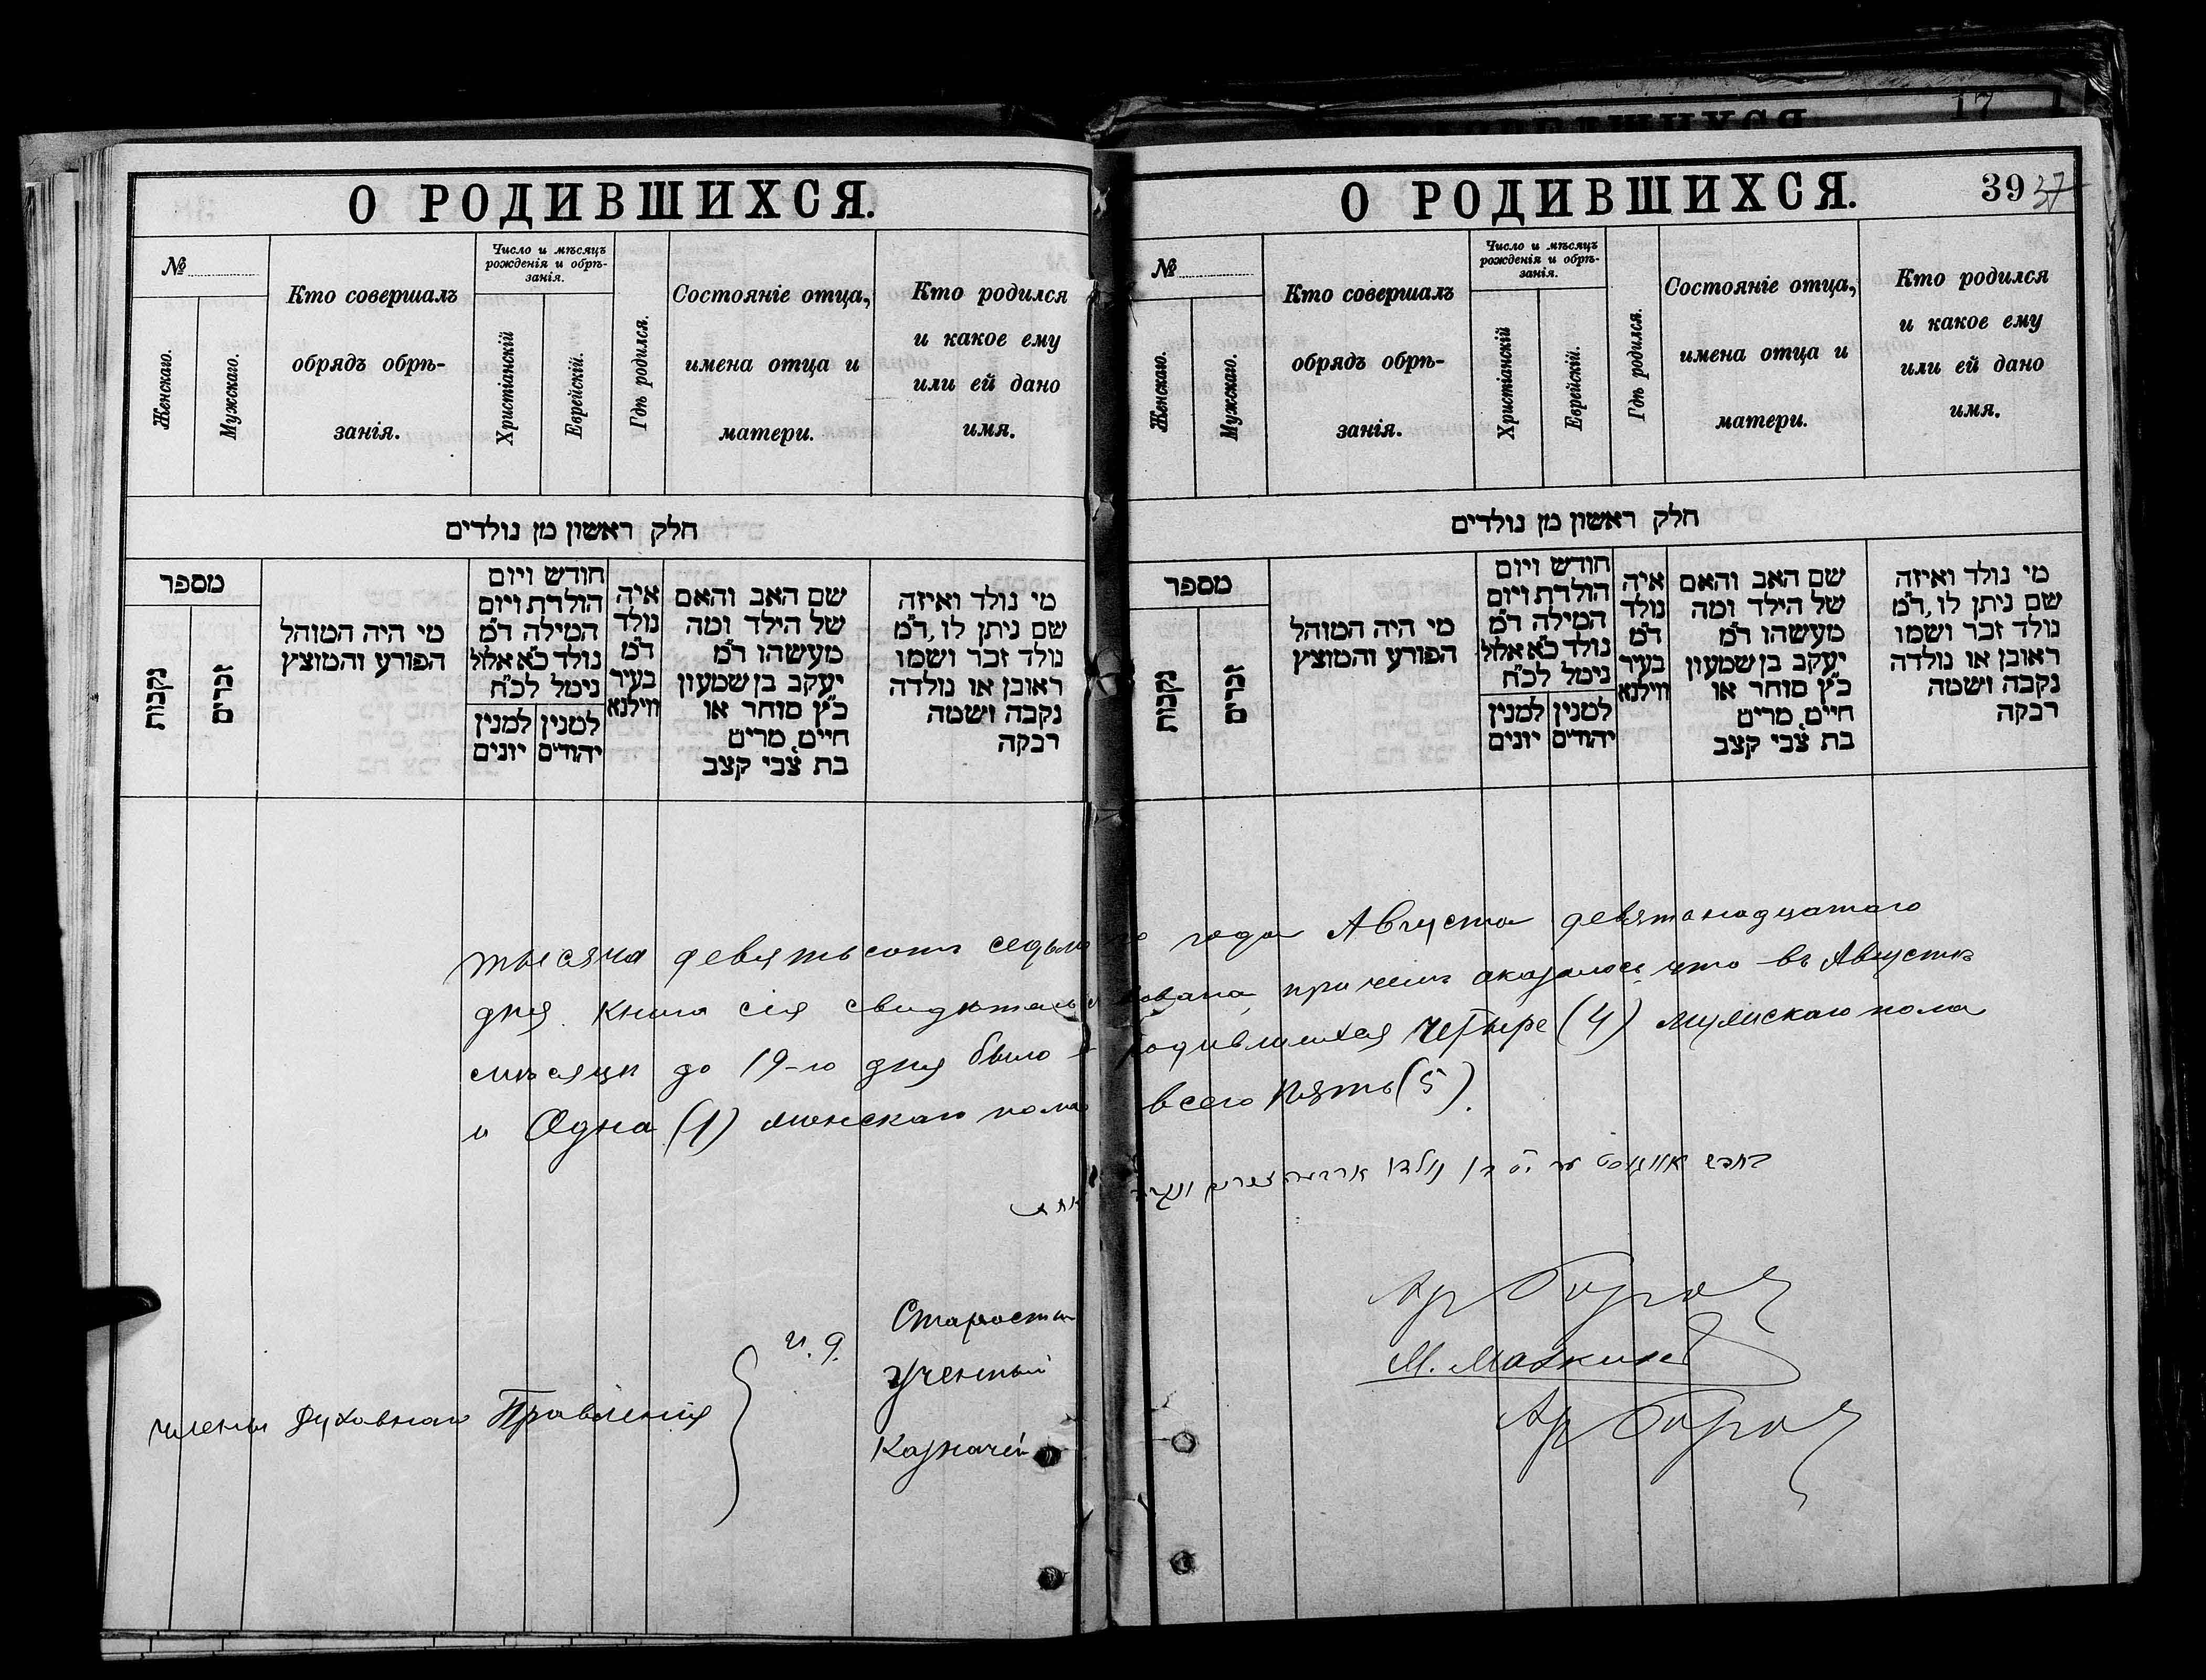 О РОДИВШИХСЯ.
№
Женскаго.
Мужскаго.
Кто совершалъ
обрядъ обрѣ-
занія.
Число и мѣсяцъ
рожденія и обрѣ-
занія.
Христіанскій
Еврейскій.
Гдѣ родился.
Состояніе отца,
имена отца и
матери.
Кто родился
и какое ему
или ей дано
имя.
חלק ראשון מן נולדים
מספר
נקבות
זכרים
מי היה המוהל
הפורע והמוצץ
חודש ויום
הולדת ויום
המילה ד״מ
נולד כ״א אלול
נימל לכ״ח
למנין יהודים
למנין יונים
איה
נולד
ד״מ
בעיר
ווילנא
שם האב והאם
של הילד ומה
מעשהו ד״מ
יעקב בן שמעון
כ״ץ סוחר או
חיים, מרים
בת צבי קצב
מי נולד ואיזה
שם ניתן לו, ד״מ
נולד זכר ושמו
ראובן או נולדה
נקבה ושמה
רבקה
О РОДИВШИХСЯ.
39 37
№
Женскаго.
Мужскаго.
Кто совершалъ
обрядъ обрѣ-
занія.
Число и мѣсяцъ
рожденія и обрѣ-
занія.
Христіанскій
Еврейскій.
Гдѣ родился.
Состояніе отца,
имена отца и
матери.
Кто родился
и какое ему
или ей дано
имя.
חלק ראשון מן נולדים
מספר
נקבות
זכרים
מי היה המוהל
הפורע והמוצץ
חודש ויום
הולדת ויום
המילה ד״מ
נולד כ״א אלול
נימל לכ״ח
למנין יהודים
למנין יונים
איה
נולד
ד״מ
בעיר
ווילנא
שם האב והאם
של הילד ומה
מעשהו ד״מ
יעקב בן שמעון
כ״ץ סוחר או
חיים, מרים
בת צבי קצב
מי נולד ואיזה
שם ניתן לו, ד״מ
נולד זכר ושמו
ראובן או נולדה
נקבה ושמה
רבקה
тысяча девятьсотъ седьмого года Августа девятонадцатаго
дня. Книга сія свидѣтельствована, при чемъ оказалось, что въ Августѣ
мѣсяцѣ до 19-го дня было родившихся четыре (4) мужскаго пола
и Одна (1) женскаго пола всего пять (5).
Члены Духовнаго Правленія
и. д.
Староста
Ученый
Казначей
М. Мазкин